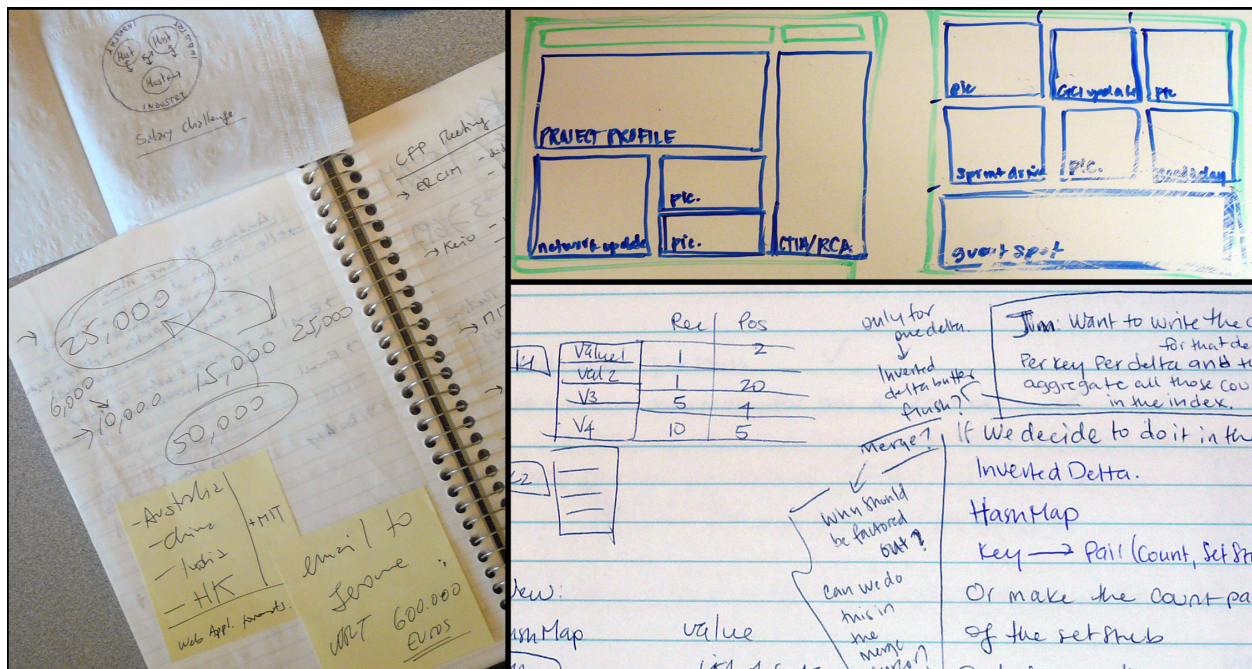 INDUSTRY
INDUSTRY
Host
Host
Host
INDUSTRY
Salary Challenge
CFP Meeting
→ ERCIM
→ Keio
→ MIT
25,000
25,000
15,000
6,000
→ 10,000
50,000
- Australia
- China
- India
- HK
+ MIT
Web Appl. formats.
email to
Jerome :
WRT 600.000
Euros
PROJECT PROFILE
network update
pic.
pic.
CTIA/RCA
pic
GCI update
pic
Sprint drive
pic.
guest spot
Rec Pos
Value1 1 2
Val2 1 20
V3 5 4
V4 10 5
only for
one delta.
Inverted
delta buffer
flush?
merge?
Why should
be factored
out?
can we do
this in
the
merge
Jim: Want to write the
for that de
Per key Per delta and th
aggregate all those cou
in the index.
If we decide to do it in the
Inverted Delta.
HashMap
Key → Pair (Count, SetSt
Or make the count pa
of the setStub
value